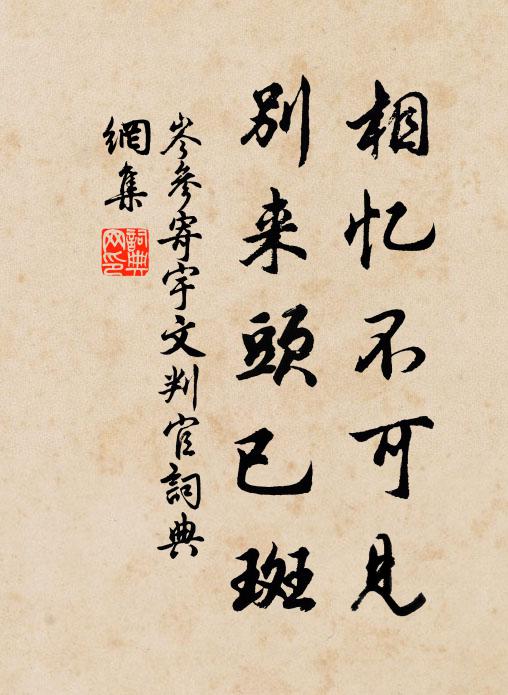 相忆不可见
别来頭已斑
岑參寄宇文判官詞典
網集
詞典
网印